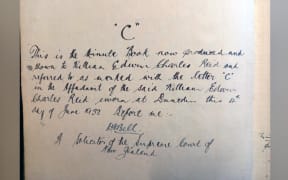 "C"
This is the Minute Book now produced and
shown to William Edwin Charles Reid and
referred to as marked with the letter "C"
in the Affidavit of the said William Edwin
Charles Reid sworn at Dunedin this
day of June 1932 Before me :-
A Solicitor of the Supreme Court of
New Zealand